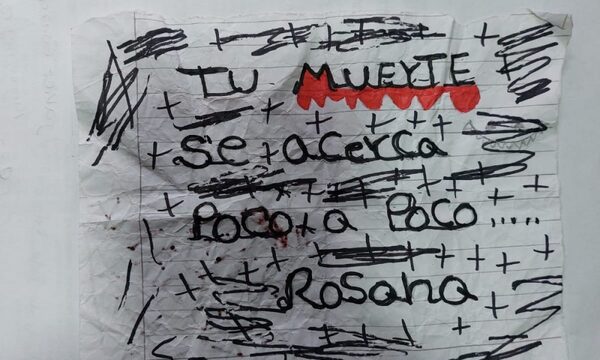 TU MUERTE
se acerca
POCO a POCO.....
Rosana